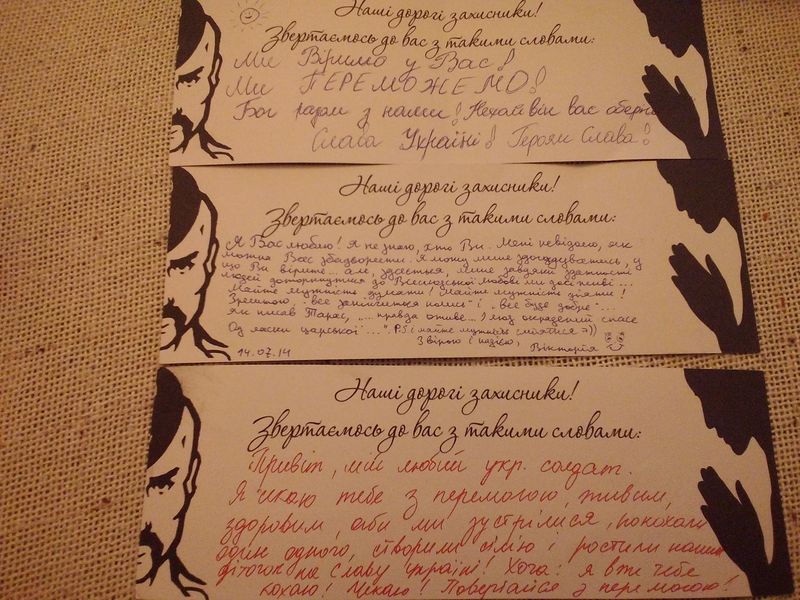 Наші дорогі захисники!
Звертаємось до вас з такими словами:
Ми Віримо у Вас!
Ми ПЕРЕМОЖЕМО!
Бог разом з нами! Нехай він вас оберіга
Слава Україні! Героям Слава!
Наші дорогі захисники!
Звертаємось до вас з такими словами:
Я Вас люблю! Я не знаю, хто Ви. Мені невідомо, як
можна Вас збадьорити. Я можу лише здогадуватись, у
що Ви вірите... але, здається, лише завдяки здатності
людей доторкнутися до Всесвітньої Любові ми досі живі...
Майте мужність думати! Майте мужність діяти!
Зрештою, "все закінчиться колись" і "все буде добре"...
Як писав Тарас, "... правда оживе...) люд окрадений спасе
Од ласки царської...". P.S. і майте мужність сміятися =))
З вірою і надією, Вікторія
14.07.14
Наші дорогі захисники!
Звертаємось до вас з такими словами:
Привіт, мій любий укр. солдат.
Я чекаю тебе з перемогою, живим,
здоровим, аби ми зустрілися, покохали
один одного, створили сім'ю і ростили наших
діточок на славу україні! Хоча: я вже тебе
кохаю! Чекаю! Повертайся з перемогою!